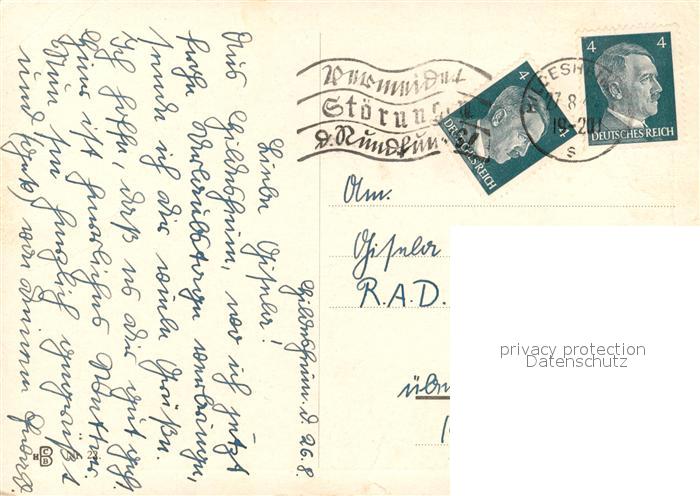 Vermeidet
Störungen
d. Rundfun
4
DEUTSCHES REICH
4
4
4
DEUTSCHES REICH
27.8.
19-20
s
Hildesheim d. 26.8.
Liebe Gisela!
Aus Hildesheim, wo ich jetzt
frohe Urlaubstage verbringe,
sende ich dir viele Grüße.
Ich hoffe, daß es dir gut geht.
Hier ist herrliches Wetter.
Nun sei herzlich gegrüßt
und geküßt von deinem
An.
Gisela
R.A.D.
über
privacy protection
Datenschutz
H C B
Nr. 22.